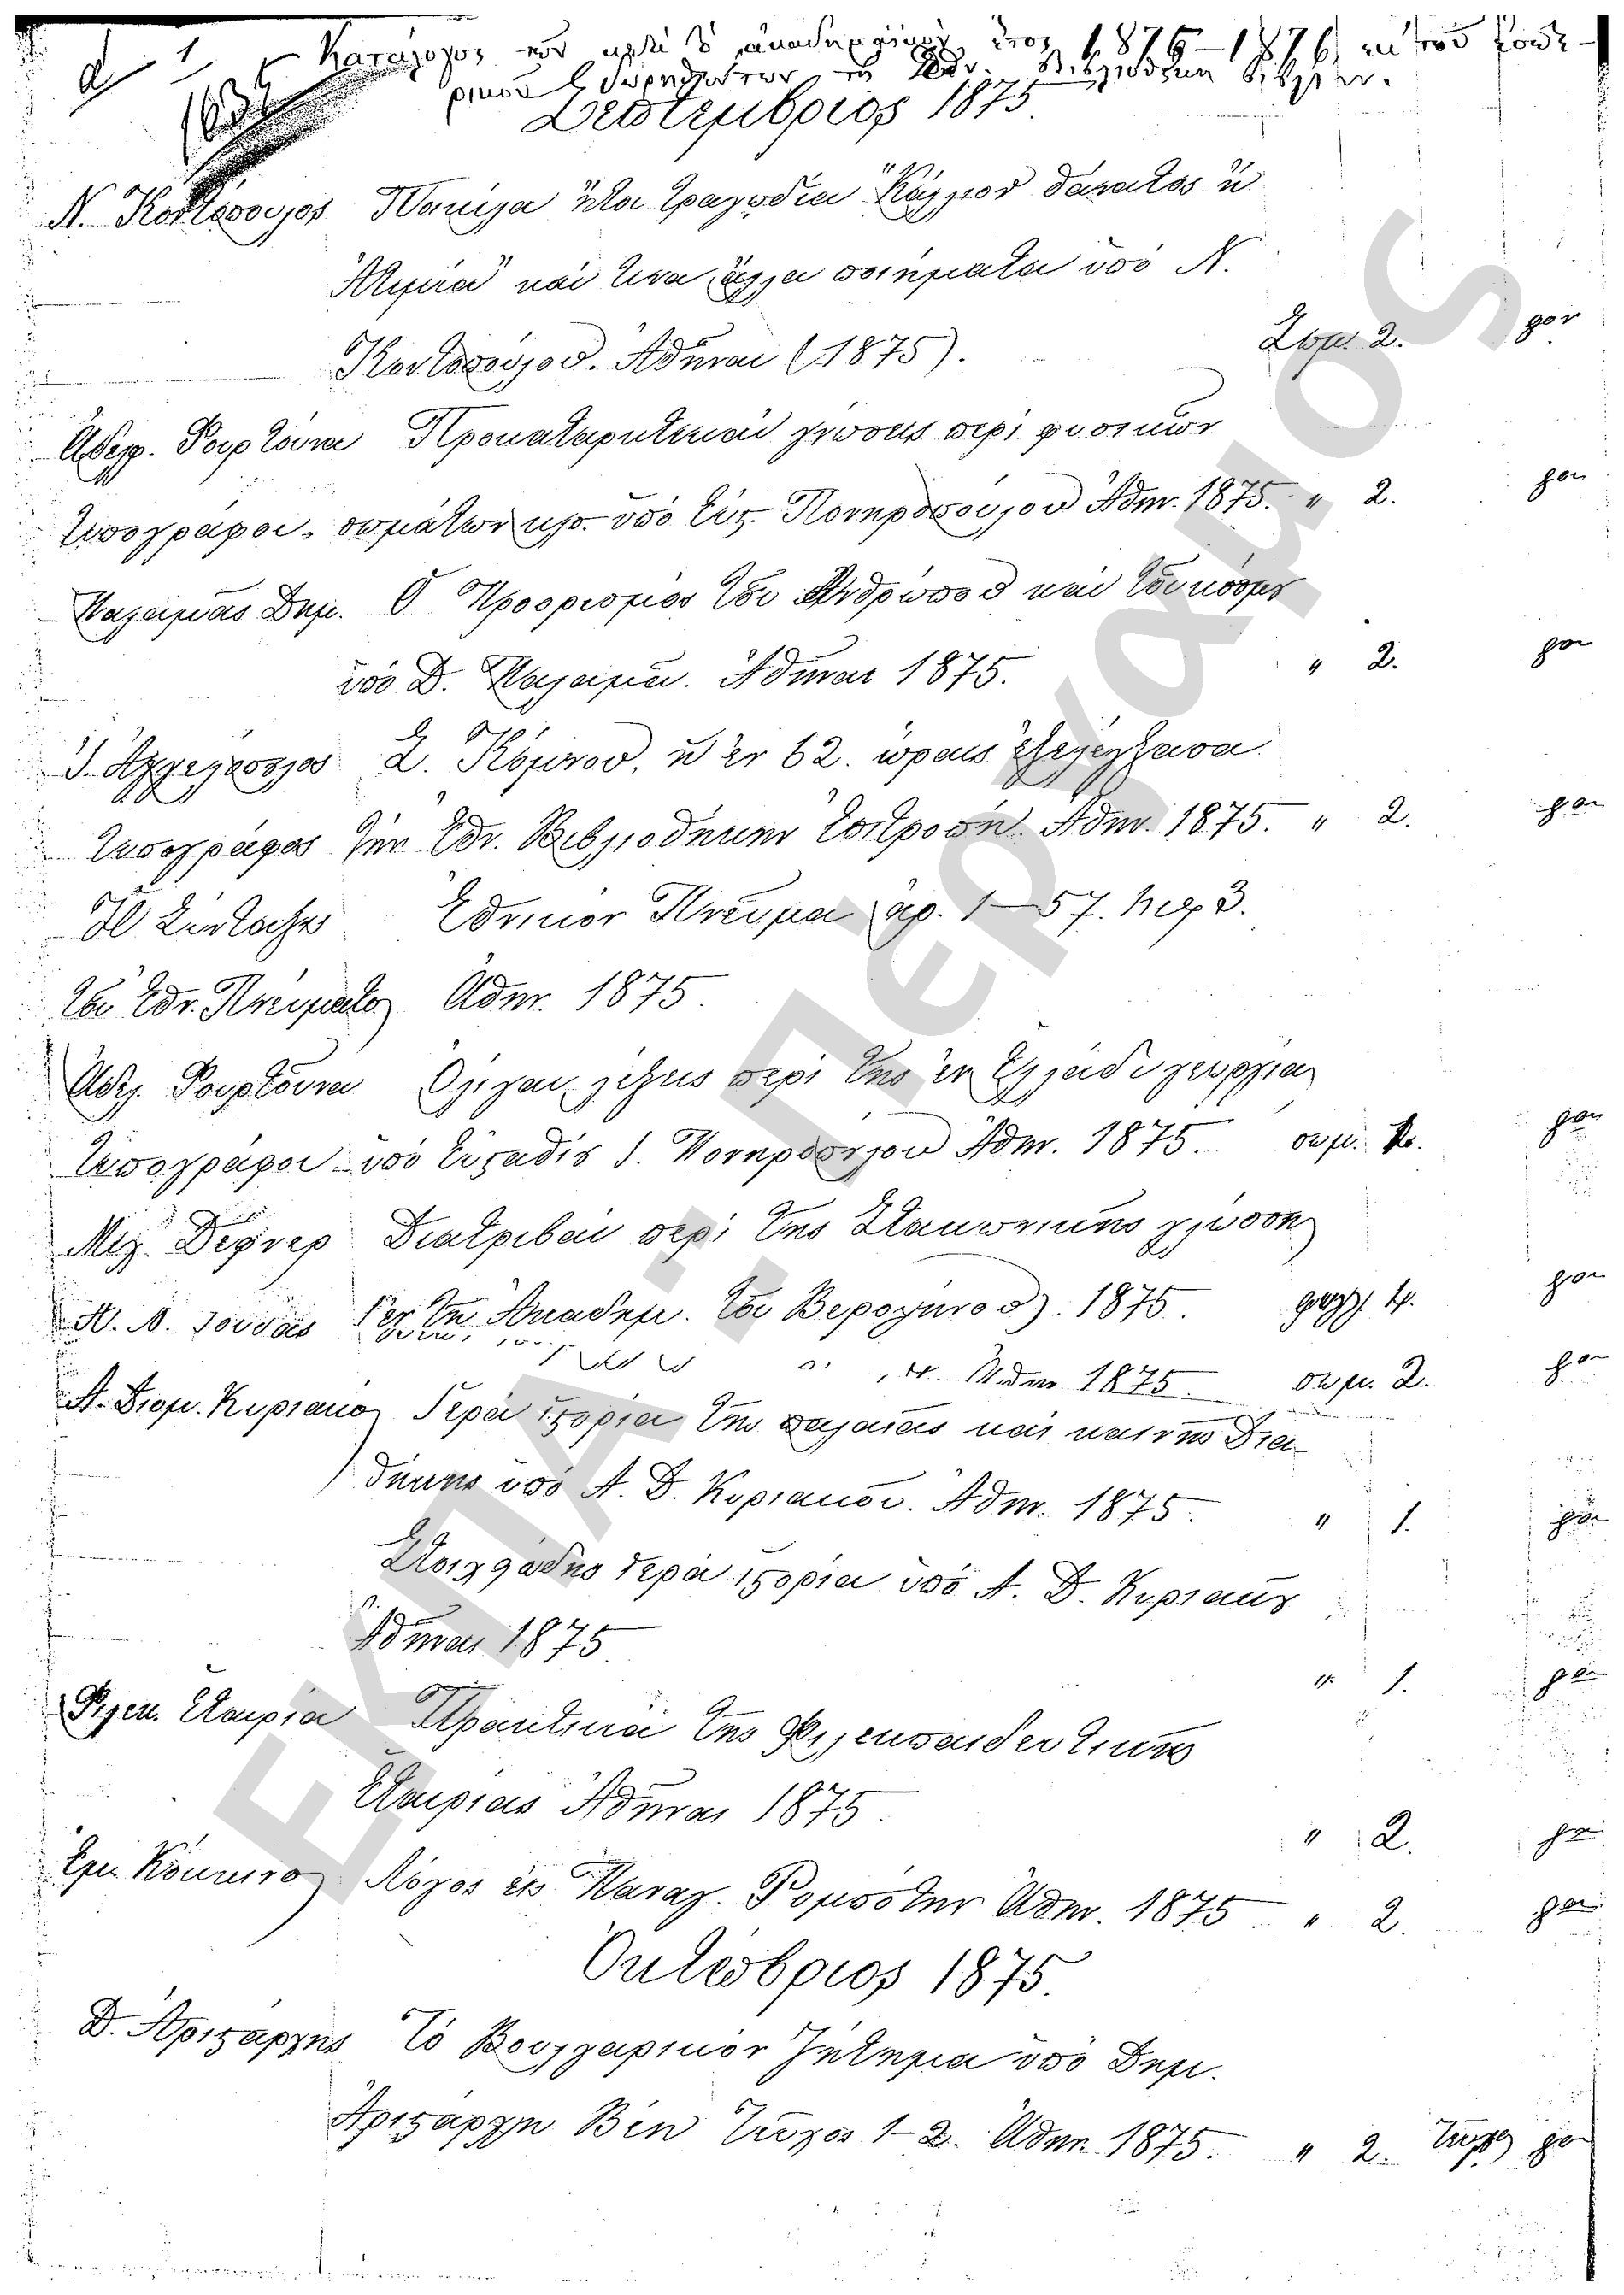 1
Κατάλογος τῶν κατὰ τὸ ἀκαδημαϊκὸν ἔτος 1875–1876 ἐκ τοῦ ἐσωτε-
ρικοῦ δωρηθέντων τῇ Ἐθν. Βιβλιοθήκῃ βιβλίων.
Σεπτέμβριος 1875
Ν. Κοντόπουλος Ποικίλα ἤτοι τραγῳδία "Κάλλιον θάνατος ἢ
Ἀτιμία" καὶ τινα ἄλλα ποιήματα ὑπὸ Ν.
Κοντοπούλου. Ἀθῆναι (1875). Σωμ. 2.
Ἀδελφ. Ῥουφτόναι Προκαταρκτικαὶ γνώσεις περὶ φυσικῶν
τυπογράφοι. σωμάτων κλπ. ὑπὸ Εὐς. Πονηροπούλου Ἀθην. 1875. " 2.
Μαλαιμᾶς Δημ. Ὁ Προορισμὸς τοῦ Ἀνθρώπου καὶ τοῦ κόσμου
ὑπὸ Δ. Μαλαιμᾶ. Ἀθῆναι 1875. " 2.
Ἰ. Ἀγγελόπουλος Σ. Κόμνου, ἡ ἐν 62. ὥραις ἐξελέγξασα
τυπογράφος τὴν Ἐθν. Βιβλιοθήκην Ἐπιτροπή. Ἀθην. 1875. " 2.
Ἡ Σύνταξις Ἐθνικὸν Πνεῦμα ἀρ. 1–57.
τοῦ Ἐθν. Πνεύματος Ἀθην. 1875.
Ἀδελ. Ῥουφτόναι Ὀλίγαι λέξεις περὶ τῆς ἐν Ἑλλάδι γεωργίας
τυπογράφοι ὑπὸ Εὐσταθίου Ἰ. Πονηροπούλου Ἀθην. 1875. σωμ.
Μιχ. Δέφνερ Διατριβαὶ περὶ τῆς Τσακωνικῆς γλώσσης
(ἐν τῇ Ἀκαδημ. τοῦ Βερολίνου). 1875. φυλλ. 4.
Ἀθην 1875. σωμ. 2.
Α. Διομ. Κυριακὸς Ἱερὰ ἱστορία τῆς παλαιᾶς καὶ καινῆς Δια-
θήκης ὑπὸ Α. Δ. Κυριακοῦ. Ἀθην. 1875. " 1.
Στοιχειώδης ἱερὰ ἱστορία ὑπὸ Α. Δ. Κυριακοῦ
Ἀθῆναι 1875 " 1.
Φιλεκ. Ἑταιρία Πρακτικὰ τῆς Φιλεκπαιδευτικῆς
Ἑταιρίας Ἀθῆναι 1875. " 2.
Ἐμ. Κόκκινος Λόγος εἰς Παναγ. Ῥομπότην Ἀθην. 1875. " 2.
Ὀκτώβριος 1875.
Δ. Ἀριστάρχης Τὸ Βουλγαρικὸν ζήτημα ὑπὸ Δημ.
Ἀριστάρχη Βέη τεῦχος 1–2. Ἀθην. 1875. " 2.
ΕΚΠΑ : Πέργαμος